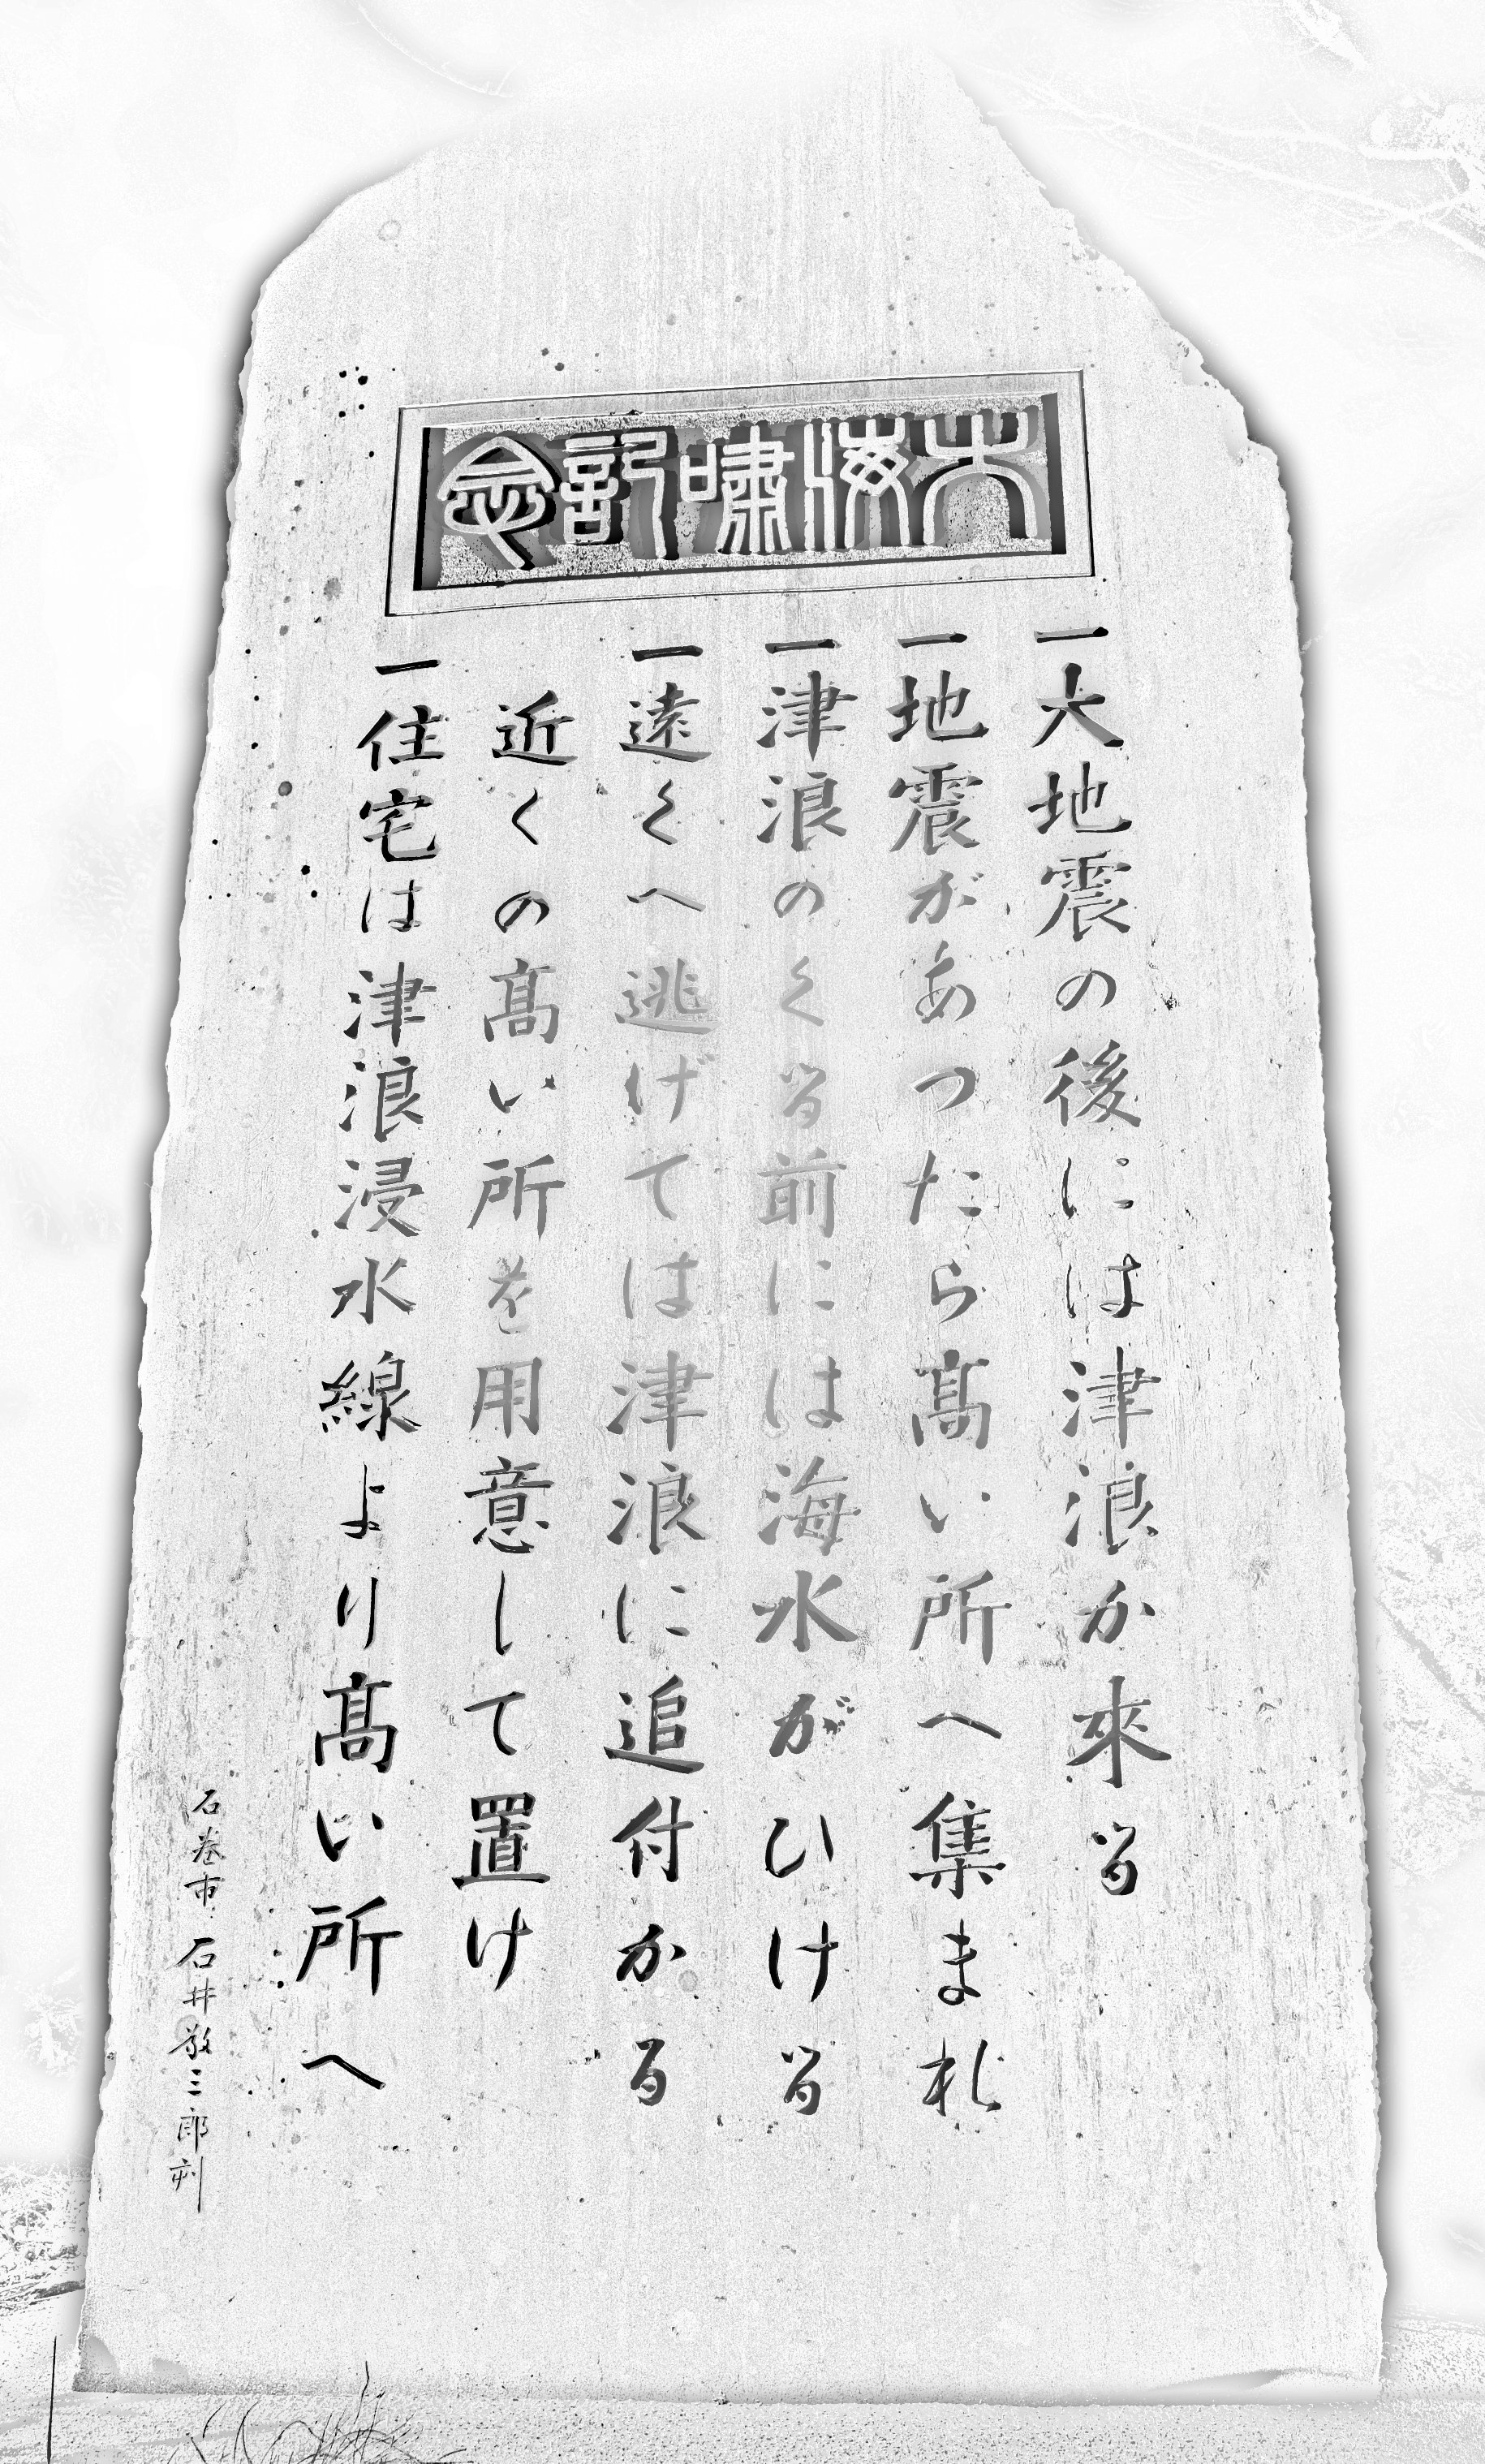 大海嘯記念
一大地震の後には津浪か來る
一地震があつたら髙い所へ集まれ
一津浪のくる前には海水がひける
一遠くへ逃げては津浪に追付かる
近くの髙い所を用意して置け
一住宅は津浪浸水線より髙い所へ
石巻市 石井敬三郎刻